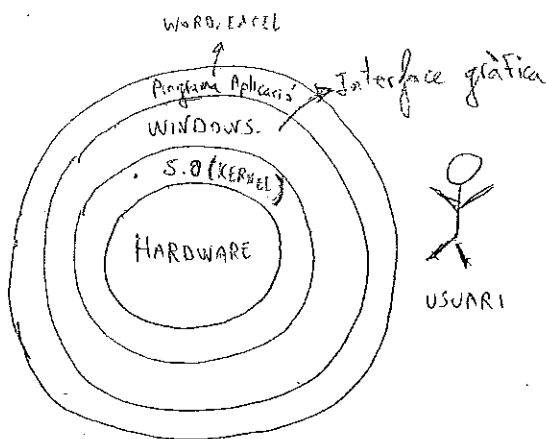 WORD, EXCEL
Programa Aplicació
Interface gràfica
WINDOWS.
S.O (KERNEL)
HARDWARE
USUARI